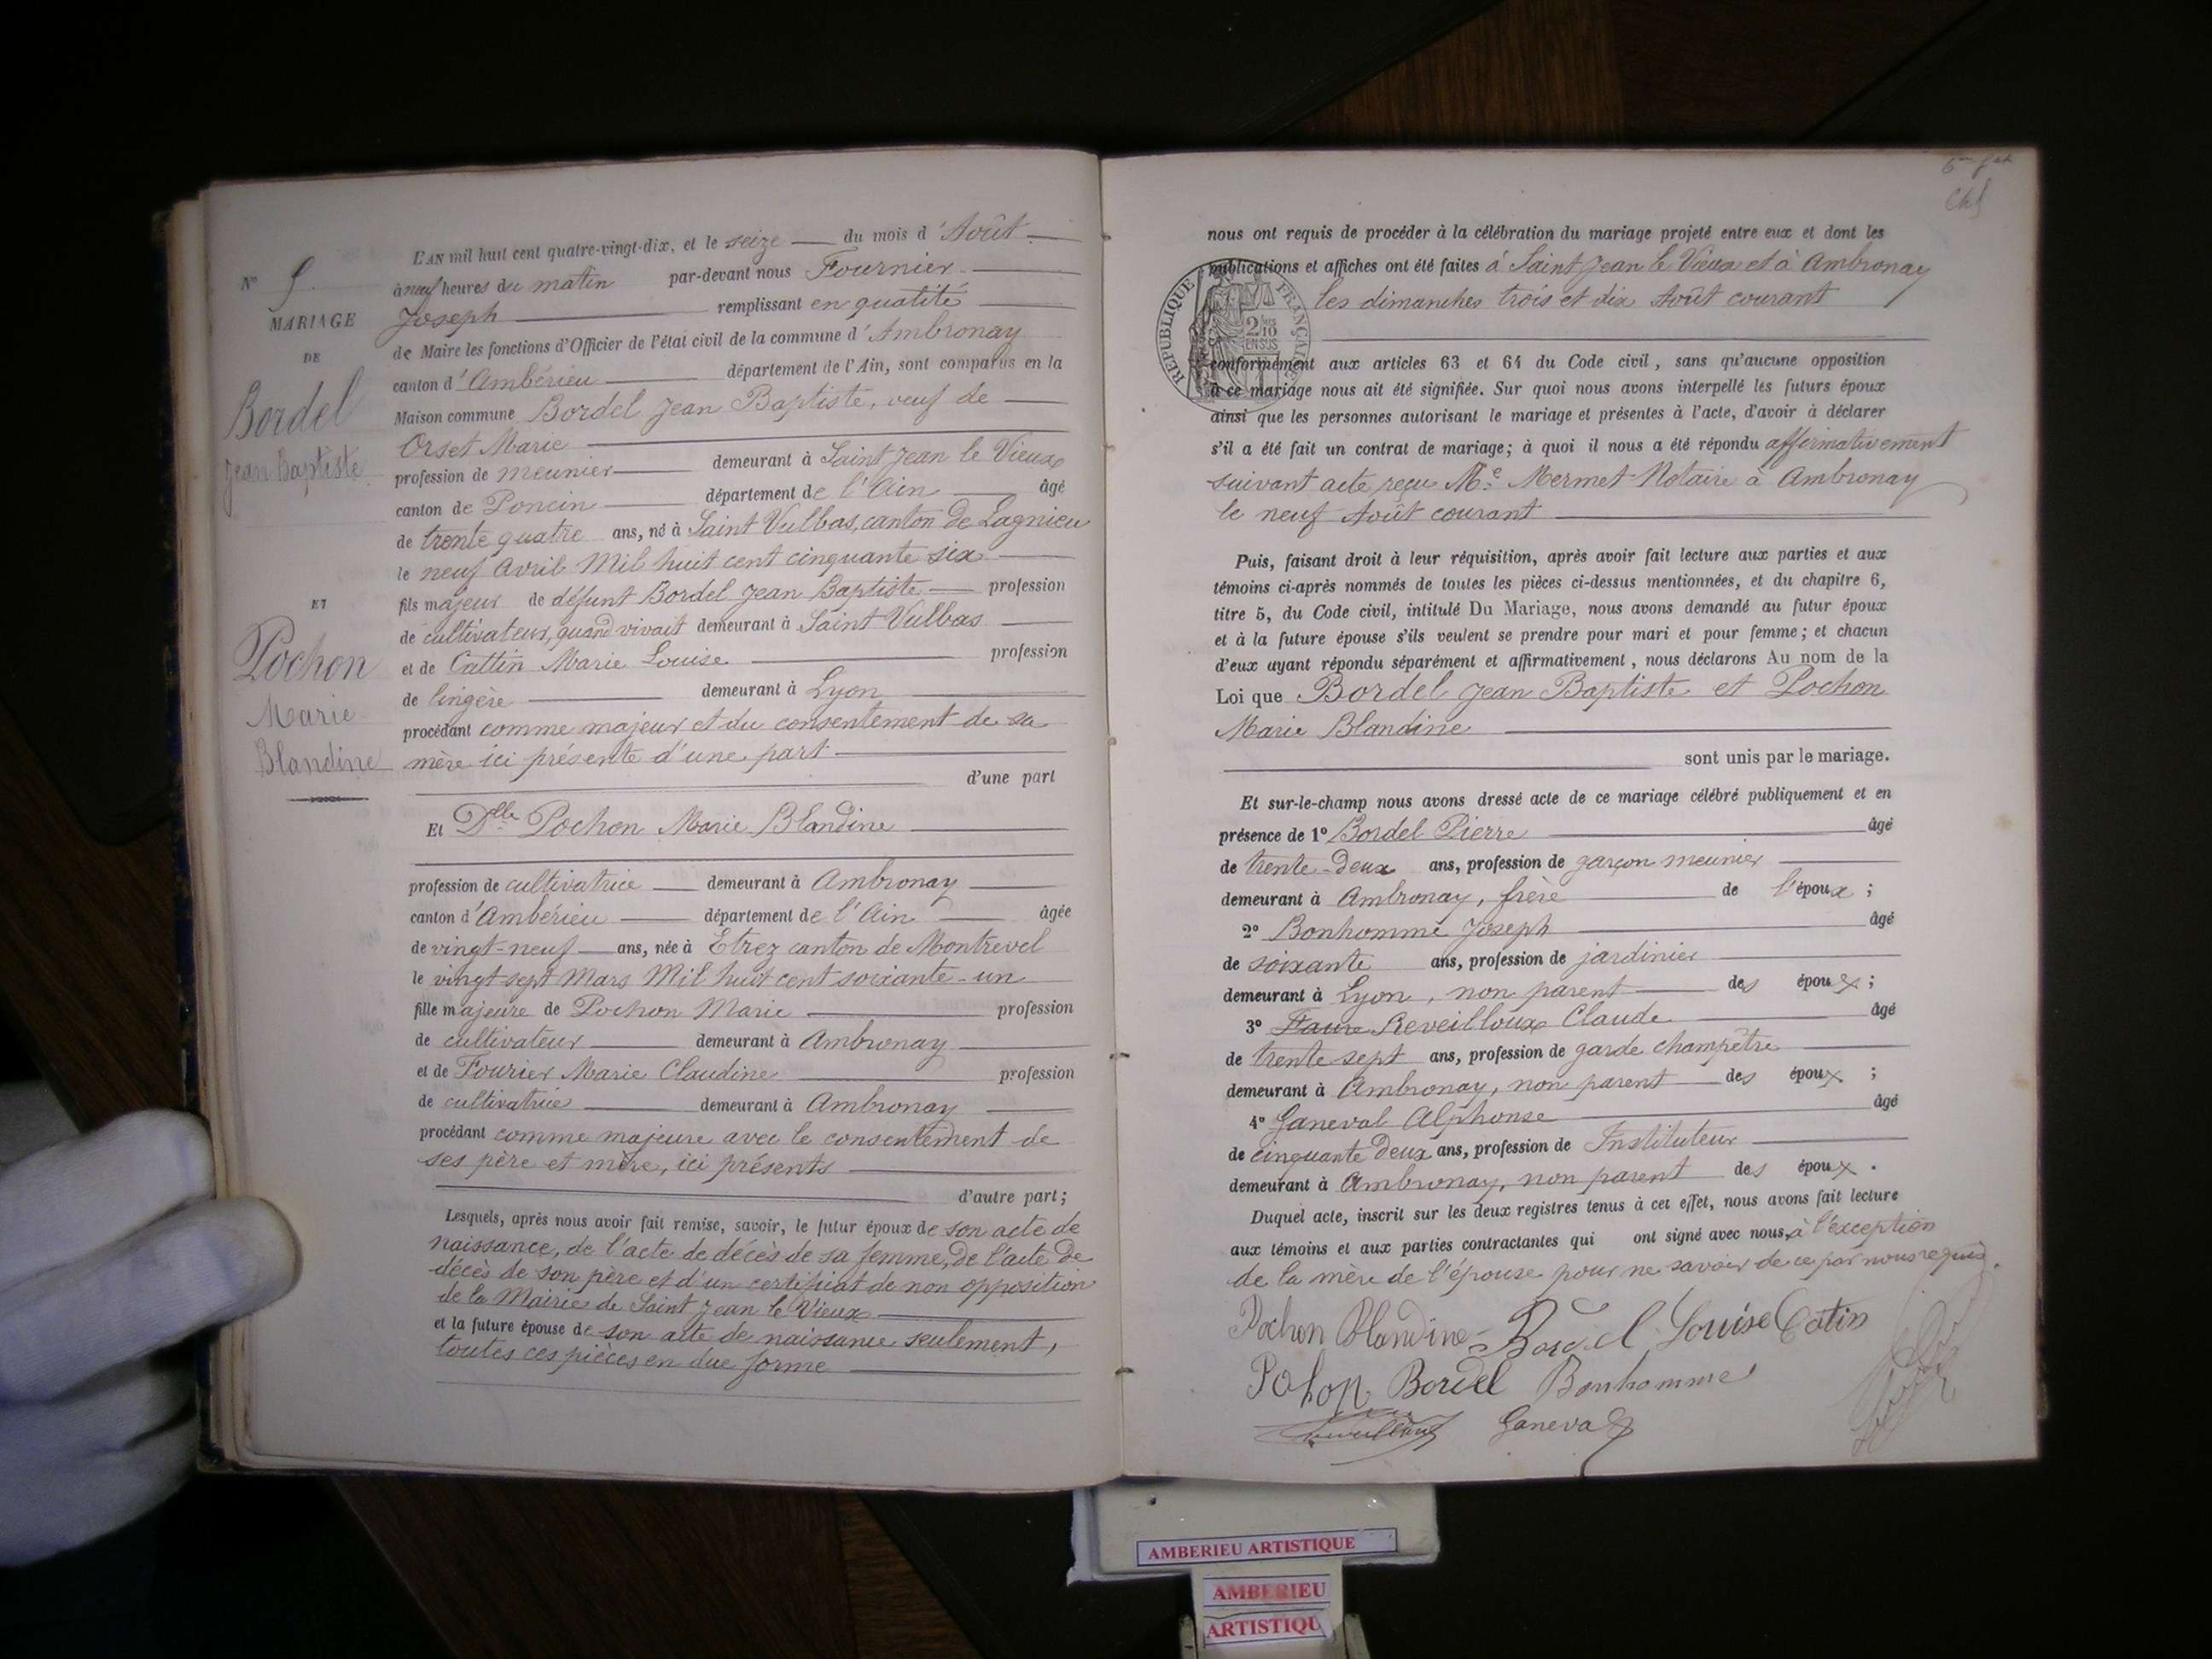 N° 5.
MARIAGE
DE
Bordel
Jean Baptiste
ET
Pochon
Marie
Blandine
L'AN mil huit cent quatre-vingt-dix, et le seize du mois d'Août
à neuf heures du matin par-devant nous Fournier
Joseph remplissant en qualité
de Maire les fonctions d'Officier de l'état civil de la commune d'Ambronay
canton d'Ambérieu département de l'Ain, sont comparus en la
Maison commune Bordel Jean Baptiste, veuf de
Orset Marie
profession de meunier demeurant à Saint Jean le Vieux
canton de Poncin département de l'Ain âgé
de trente quatre ans, né à Saint Vulbas, canton de Lagnieu
le neuf Avril Mil huit cent cinquante six
fils majeur de défunt Bordel Jean Baptiste profession
de cultivateur, quand vivait demeurant à Saint Vulbas
et de Cattin Marie Louise profession
de lingère demeurant à Lyon
procédant comme majeur et du consentement de sa
mère ici présente d'une part
d'une part
Et Dlle Pochon Marie Blandine
profession de cultivatrice demeurant à Ambronay
canton d'Ambérieu département de l'Ain âgée
de vingt-neuf ans, née à Etrez canton de Montrevel
le vingt sept Mars Mil huit cent soixante-un
fille majeure de Pochon Marie profession
de cultivateur demeurant à Ambronay
et de Fourier Marie Claudine profession
de cultivatrice demeurant à Ambronay
procédant comme majeure avec le consentement de
ses père et mère, ici présents
d'autre part;
Lesquels, après nous avoir fait remise, savoir, le futur époux de son acte de
naissance, de l'acte de décès de sa femme, de l'acte de
décès de son père et d'un certificat de non opposition
de la Mairie de Saint Jean le Vieux
et la future épouse de son acte de naissance seulement,
toutes ces pièces en due forme
nous ont requis de procéder à la célébration du mariage projeté entre eux et dont les
publications et affiches ont été faites à Saint Jean le Vieux et à Ambronay
les dimanches trois et dix Août courant
RÉPUBLIQUE FRANÇAISE
2/10 EN SUS
conformément aux articles 63 et 64 du Code civil, sans qu'aucune opposition
à ce mariage nous ait été signifiée. Sur quoi nous avons interpellé les futurs époux
ainsi que les personnes autorisant le mariage et présentes à l'acte, d'avoir à déclarer
s'il a été fait un contrat de mariage; à quoi il nous a été répondu affirmativement
suivant acte reçu Me Mermet Notaire à Ambronay
le neuf Août courant
Puis, faisant droit à leur réquisition, après avoir fait lecture aux parties et aux
témoins ci-après nommés de toutes les pièces ci-dessus mentionnées, et du chapitre 6,
titre 5, du Code civil, intitulé Du Mariage, nous avons demandé au futur époux
et à la future épouse s'ils veulent se prendre pour mari et pour femme; et chacun
d'eux ayant répondu séparément et affirmativement, nous déclarons Au nom de la
Loi que Bordel Jean Baptiste et Pochon
Marie Blandine
sont unis par le mariage.
Et sur-le-champ nous avons dressé acte de ce mariage célébré publiquement et en
présence de 1° Bordel Pierre âgé
de trente-deux ans, profession de garçon meunier
demeurant à Ambronay, frère de l'époux;
2° Bonhomme Joseph âgé
de soixante ans, profession de jardinier
demeurant à Lyon, non parent des époux;
3° Faure Reveilloux Claude âgé
de trente sept ans, profession de garde champêtre
demeurant à Ambronay, non parent des époux;
4° Ganeval Alphonse âgé
de cinquante deux ans, profession de Instituteur
demeurant à Ambronay, non parent des époux.
Duquel acte, inscrit sur les deux registres tenus à cet effet, nous avons fait lecture
aux témoins et aux parties contractantes qui ont signé avec nous, à l'exception
de la mère de l'épouse pour ne savoir de ce par nous requis.
Pochon Blandine Bordel Louise Catin
Pohon Bordel Bonhomme
Reveilloux Ganeval
AMBERIEU ARTISTIQUE
AMBERIEU
ARTISTIQU